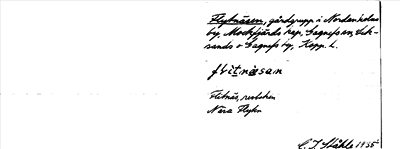 Flytnäsen, gårdgrupp i Nordanholens
by, Mockfjärds kap., Gagnefs sn, Lek-
sands o Gagnefs tg, Kopp. l.
flitnäsan
Flitnäs, rutchen
Nära Flyten
C. I. Ståhle 1935